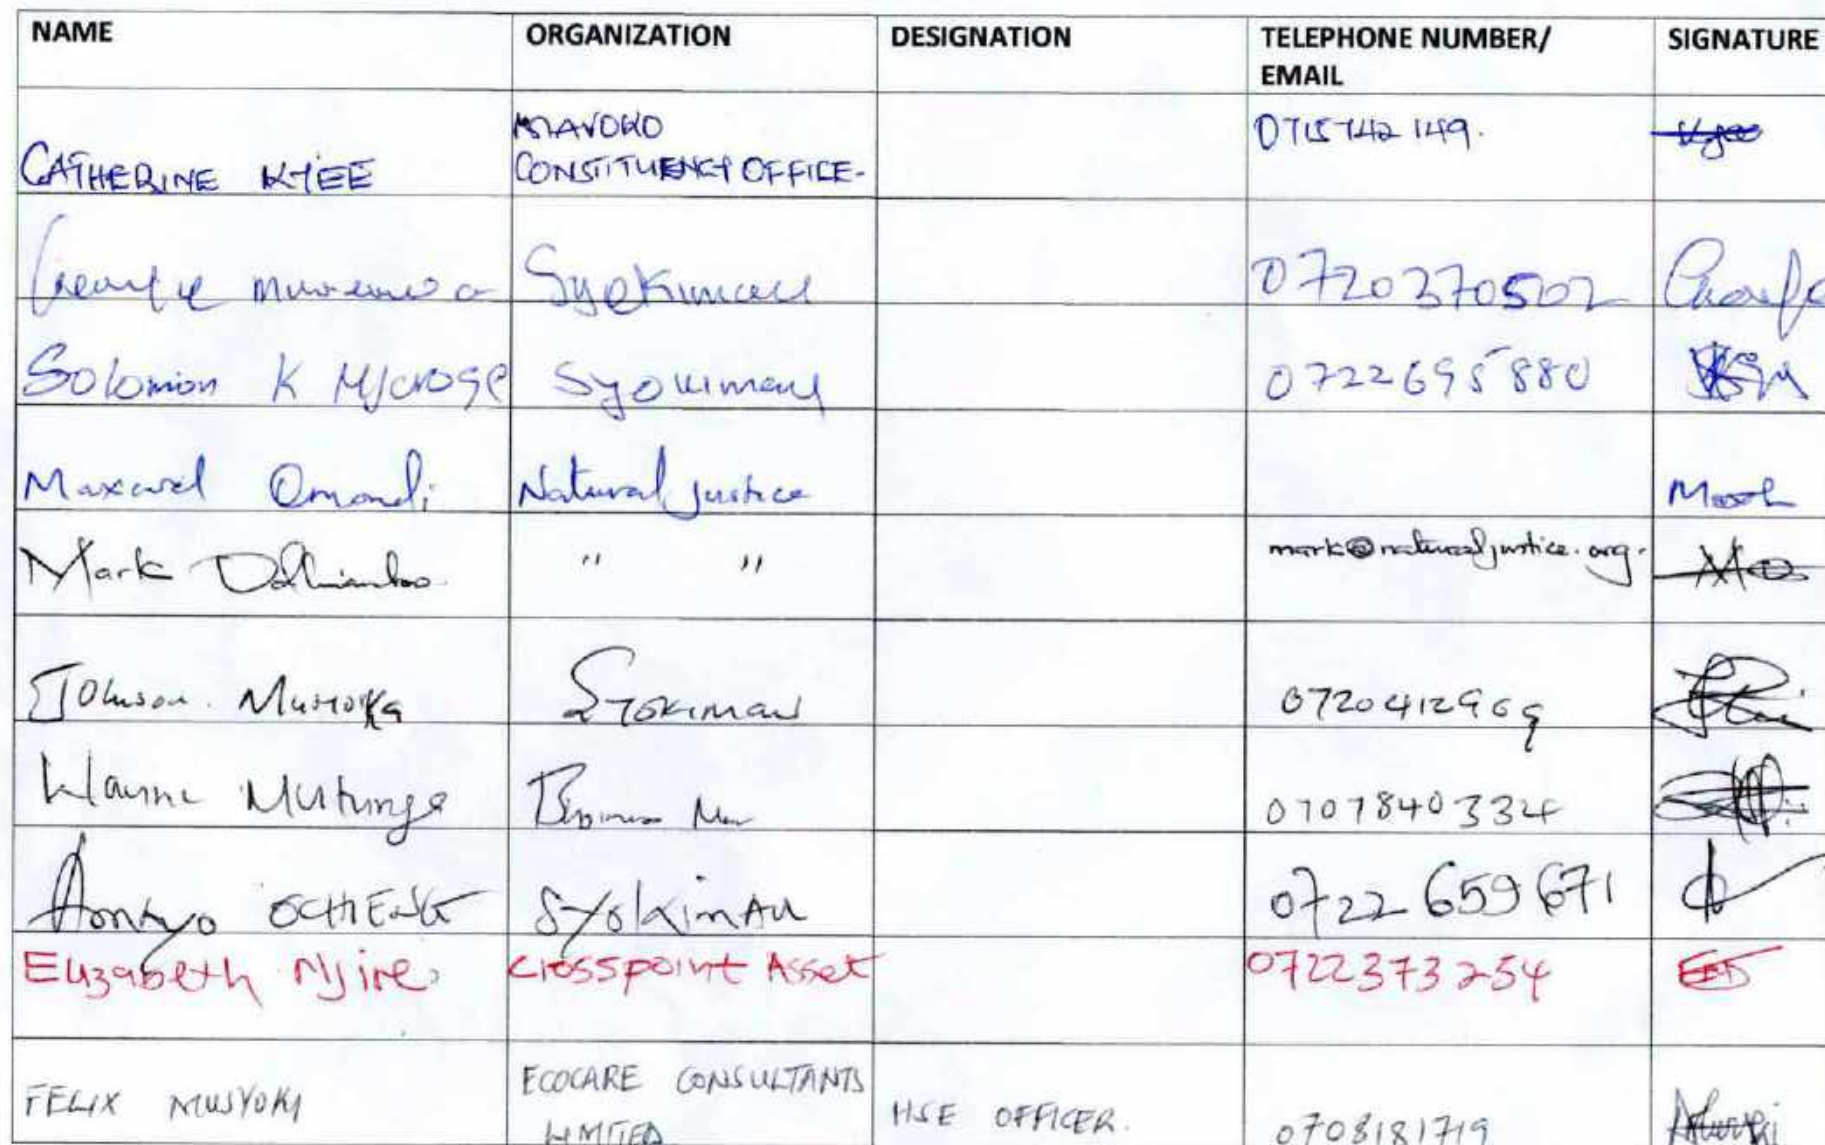 NAME ORGANIZATION DESIGNATION TELEPHONE NUMBER/ SIGNATURE
EMAIL
MAVOKO
CATHERINE KYEE CONSTITUENCY OFFICE- 0715742149.
Syokimau 0720370502
Solomon K Njoroge Syokimau 0722695880
Maxwel Omondi Natural Justice
Mark Odhiambo " " mark@naturaljustice.org.
Johnson Musyoka Syokimau 0720412969
Mutunga Business Man 0707840334
OCHIENG SYOKIMAU 0722659671
Elizabeth Njire Crosspoint Asset 0722373254
ECOCARE CONSULTANTS
FELIX MUSYOKI LIMITED HSE OFFICER. 0708181719